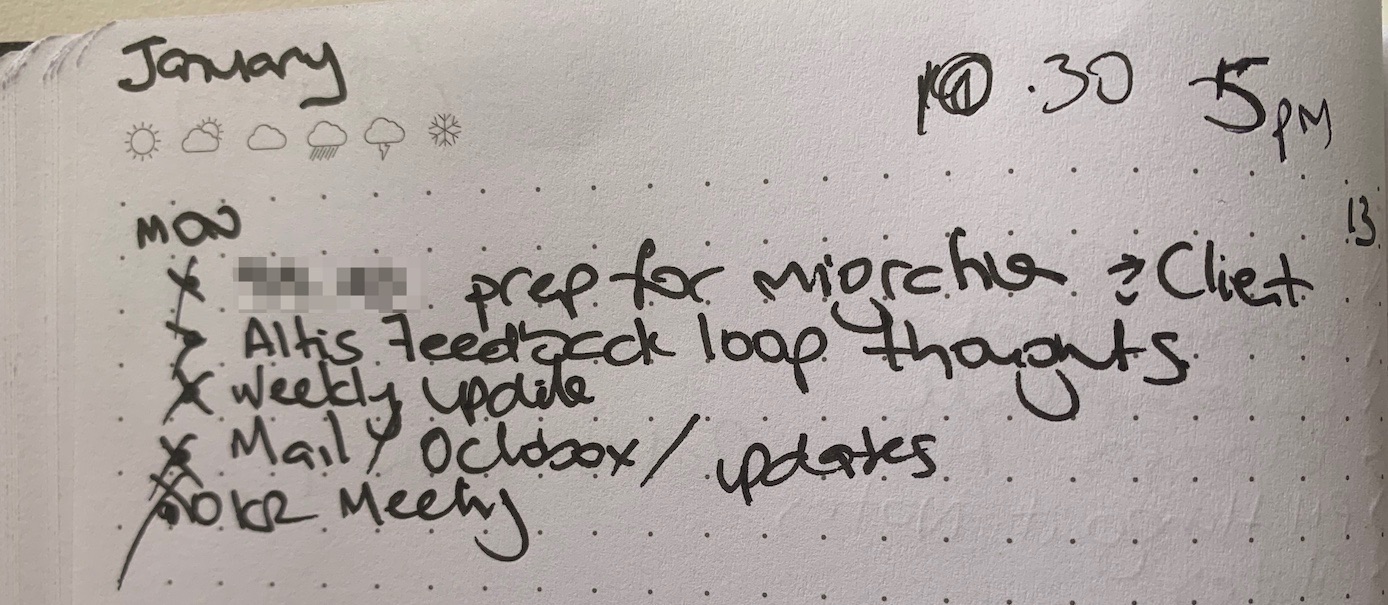 January
.30 5PM
13
MON
prep for Client
Altis Feedback loop thoughts
Weekly update
Mail / Octobox / updates
OKR Meeting